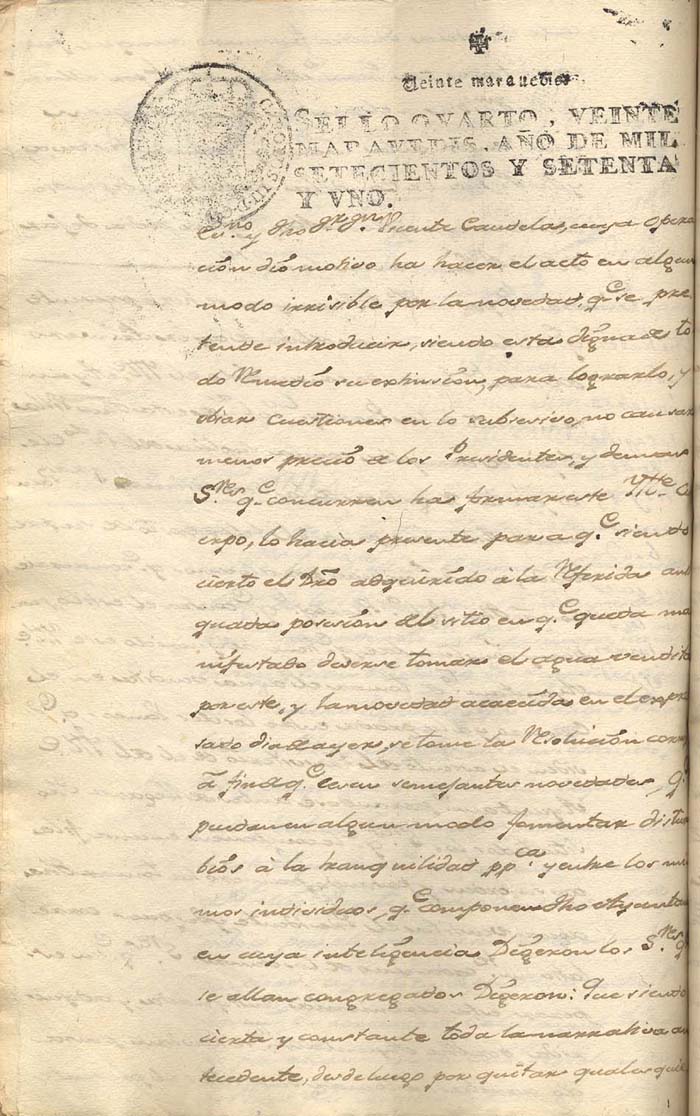 Veinte maravedis.
SELLO QVARTO, VEINTE
MARAVEDIS, AÑO DE MIL
SETECIENTOS Y SETENTA
Y VNO.
Vicente Candelas, cuya opera
ción dió motivo ha hacer el acto en algun
modo irrisible por la novedad, q.e se pre
tende introducir, siendo esta digna de to
do Remedio su exhinsión, para lograrlo, y
obiar cuestiones en lo subsesivo, no causar
menos precio a los Presidentes, y demas
S.res q.e concurren ha formar este Ytt.e C
erpo, lo hacia presente para q.e siendo
cierto el Dro adquirido à la Referida anti
quada posesión del sitio en q.e queda ma
nifestado deverse tomar el agua vendita
por este, y la novedad acaecida en el expre
sado dia de ayer, se tome la Resolución corres
à fin de q.e cesen semejantes novedades, q.
puedan en algun modo fomentar distur
bios à la tranquilidad pp.ca y entre los mis
mos individuos, q.e componen dho Ayunta
en cuya inteligencia Digeron los S.res q
se allan congregados Digeron: Que siendo
cierta y constante toda la narrativa an
tecedente, desde luego por quitar quales qui